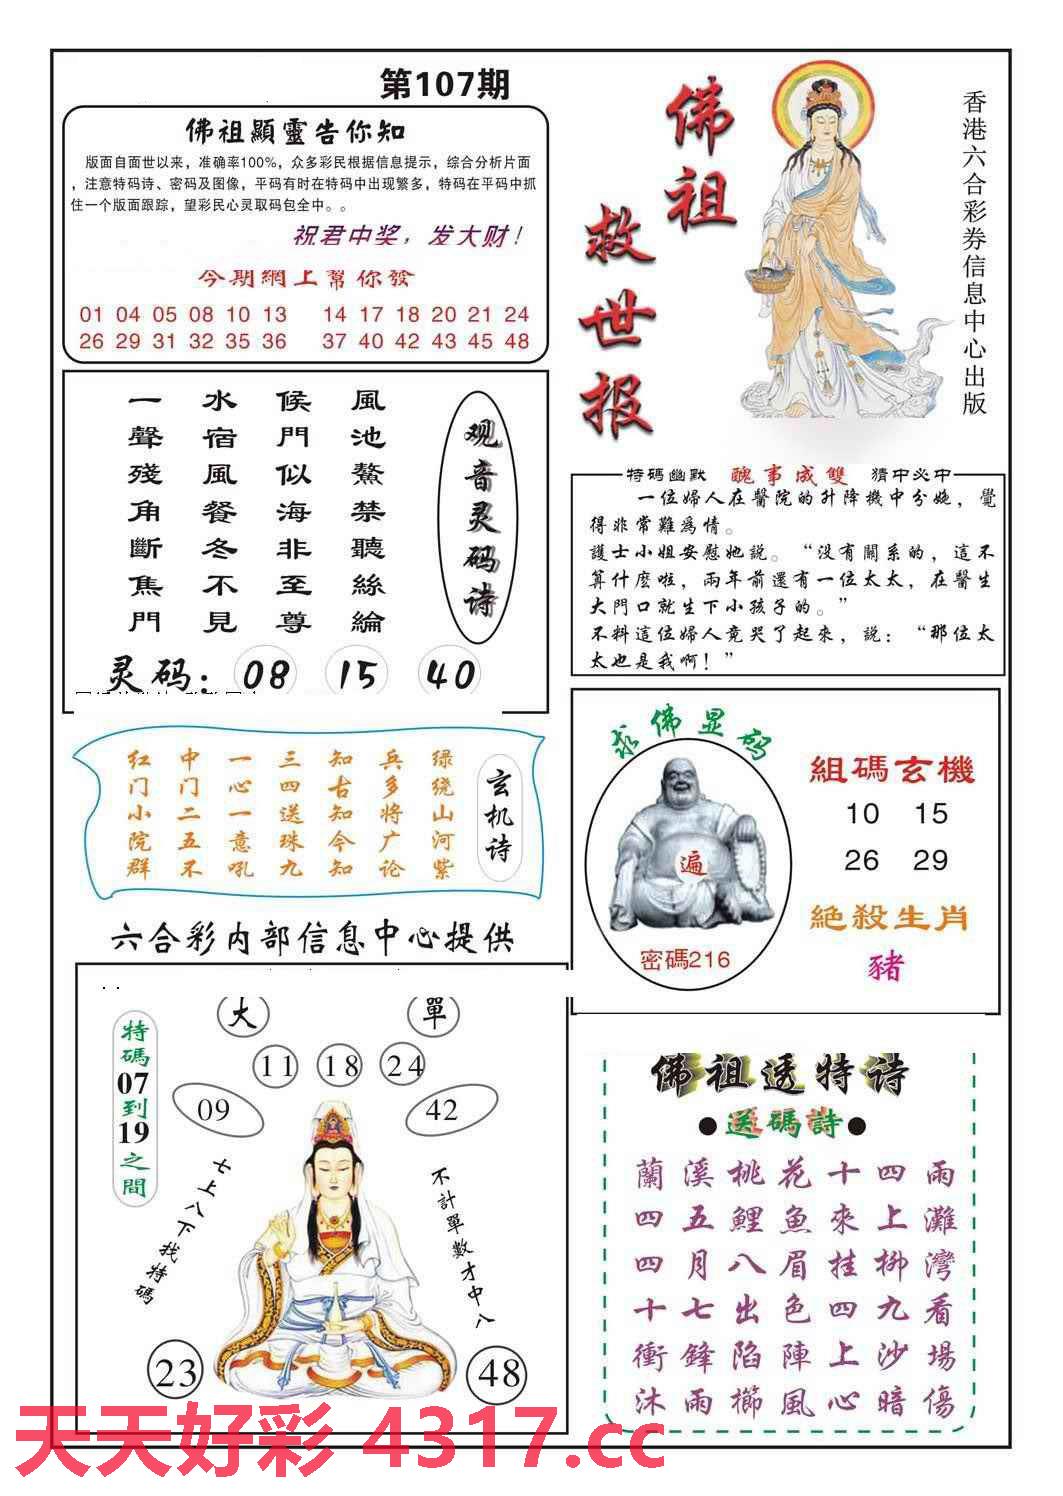 第107期
佛祖顯靈告你知
版面自面世以来，准确率100%，众多彩民根据信息提示，综合分析片面
，注意特码诗、密码及图像，平码有时在特码中出现繁多，特码在平码中抓
住一个版面跟踪，望彩民心灵取码包全中。。
祝君中奖，发大财！
今期網上幫你發
01 04 05 08 10 13 14 17 18 20 21 24
26 29 31 32 35 36 37 40 42 43 45 48
佛祖
救世报
香港六合彩券信息中心出版
观音灵码诗
風池鰲禁聽絲綸
候門似海非至尊
水宿風餐冬不見
一聲殘角斷焦門
灵码：08 15 40
特碼幽默 醜事成雙 猜中必中
一位婦人在醫院的升降機中分娩，覺
得非常難為情。
護士小姐安慰她説。“没有關系的，這不
算什麽啦，兩年前還有一位太太，在醫生
大門口就生下小孩子的。”
不料這位婦人竟哭了起來，説：“那位太
太也是我啊！”
玄机诗
绿绕山河紫
兵多将广论
知古知今知
三四送珠九
一心一意吼
中门二五不
红门小院群
求佛显码
遍
密碼216
組碼玄機
10 15
26 29
絕殺生肖
豬
六合彩内部信息中心提供
大 單
11 18 24
09 42
特碼07到19之間
七上八下找特碼
不計單數才中八
23 48
佛祖透特诗
●送碼詩●
蘭溪桃花十四雨
四五鯉魚來上灘
四月八眉挂柳灣
十七出色四九看
衝鋒陷陣上沙場
沐雨櫛風心暗傷
天天好彩 4317.cc